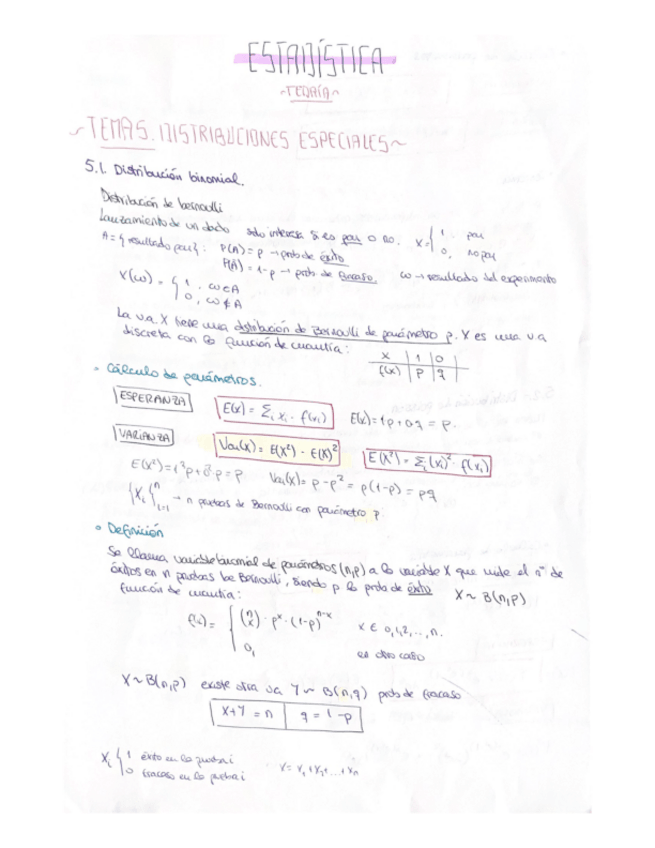 ESTADÍSTICA
~TEORÍA~
~TEMA 5. DISTRIBUCIONES ESPECIALES~
5.1. Distribución binomial.
Distribución de bernoulli
Lanzamiento de un dado solo interesa si es par o no. X = { 1, par
0, no par
A = { resultado par } : P(A) = p → prob de éxito
P(Ā) = 1-p → prob de fracaso. ω → resultado del experimento
X(ω) = { 1, ω ∈ A
0, ω ∉ A
La va X tiene una distribución de Bernoulli de parámetro p. X es una va
discreta con la función de cuantía:
X | 1 | 0
f(x) | p | q
• Cálculo de parámetros.
ESPERANZA E(x) = Σi xi · f(xi) E(x) = 1p + 0q = p.
VARIANZA Var(X) = E(X²) - E(X)² E(X²) = Σi (xi)² · f(xi)
E(X²) = 1²p + 0²·p = p Var(X) = p - p² = p(1-p) = pq
{Xi}ⁿi=1 → n pruebas de Bernoulli con parámetro p.
• Definición
Se llama variable binomial de parámetros (n,p) a la variable X que mide el nº de
éxitos en n pruebas de Bernoulli, siendo p la prob de éxito X ~ B(n,p)
función de cuantía:
f(x) = { (n x) · pˣ · (1-p)ⁿ⁻ˣ x ∈ 0,1,2,...,n.
0, en otro caso
X ~ B(n,p) existe otra va Y ~ B(n,q) prob de fracaso
X+Y = n | q = 1-p
Xi { 1 éxito en la prueba i
0 fracaso en la prueba i X = X1+X2+...+Xn